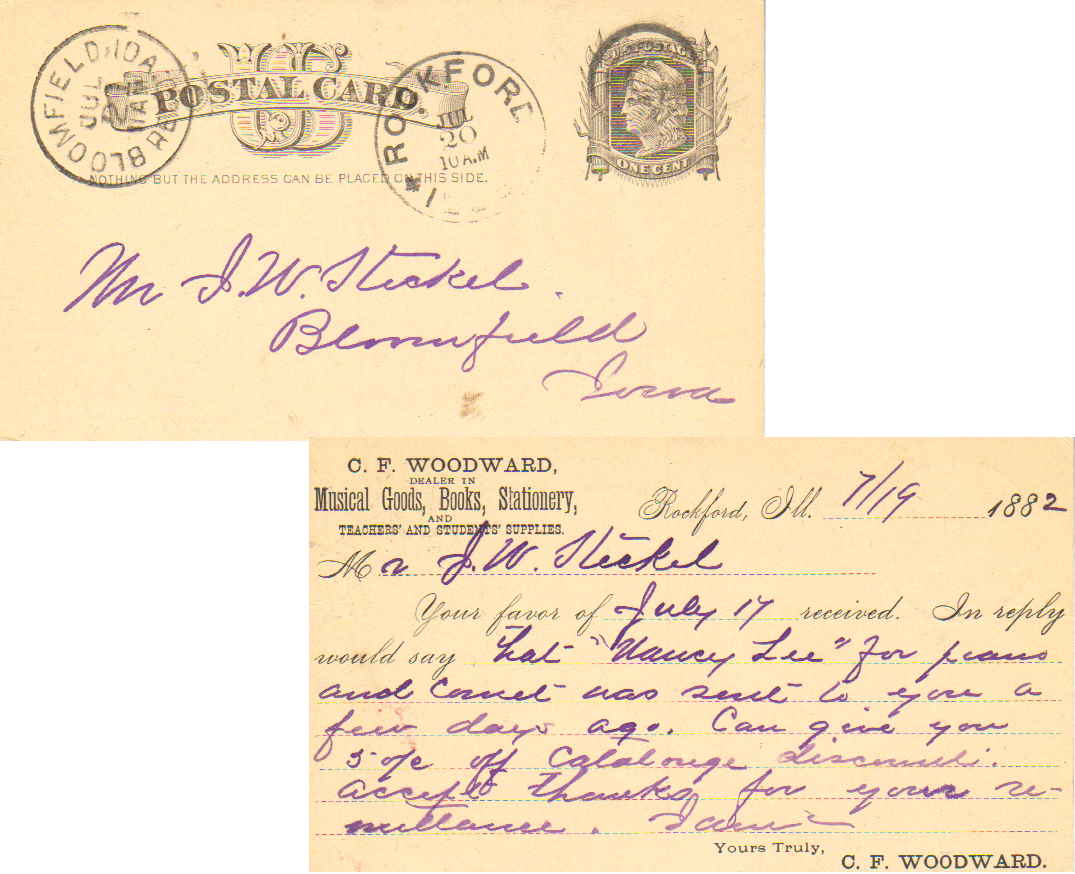 BLOOMFIELD, IOA.
JUL
11 AM
US
POSTAL CARD.
NOTHING BUT THE ADDRESS CAN BE PLACED ON THIS SIDE.
ROCKFORD
JUL
20
10 AM
U.S. POSTAGE
ONE CENT
Mr J. W. Steckel
Bloomfield
Iowa
C. F. WOODWARD,
DEALER IN
Musical Goods, Books, Stationery,
AND
TEACHERS' AND STUDENTS' SUPPLIES.
Rockford, Ill. 7/19 1882
Mr J. W. Steckel
Your favor of July 17 received. In reply
would say that "Nancy Lee" for piano
and Cornet was sent to you a
few days ago. Can give you
50% off Catalouge discount.
accept thanks for your re-
mittance.
Yours Truly,
C. F. WOODWARD.